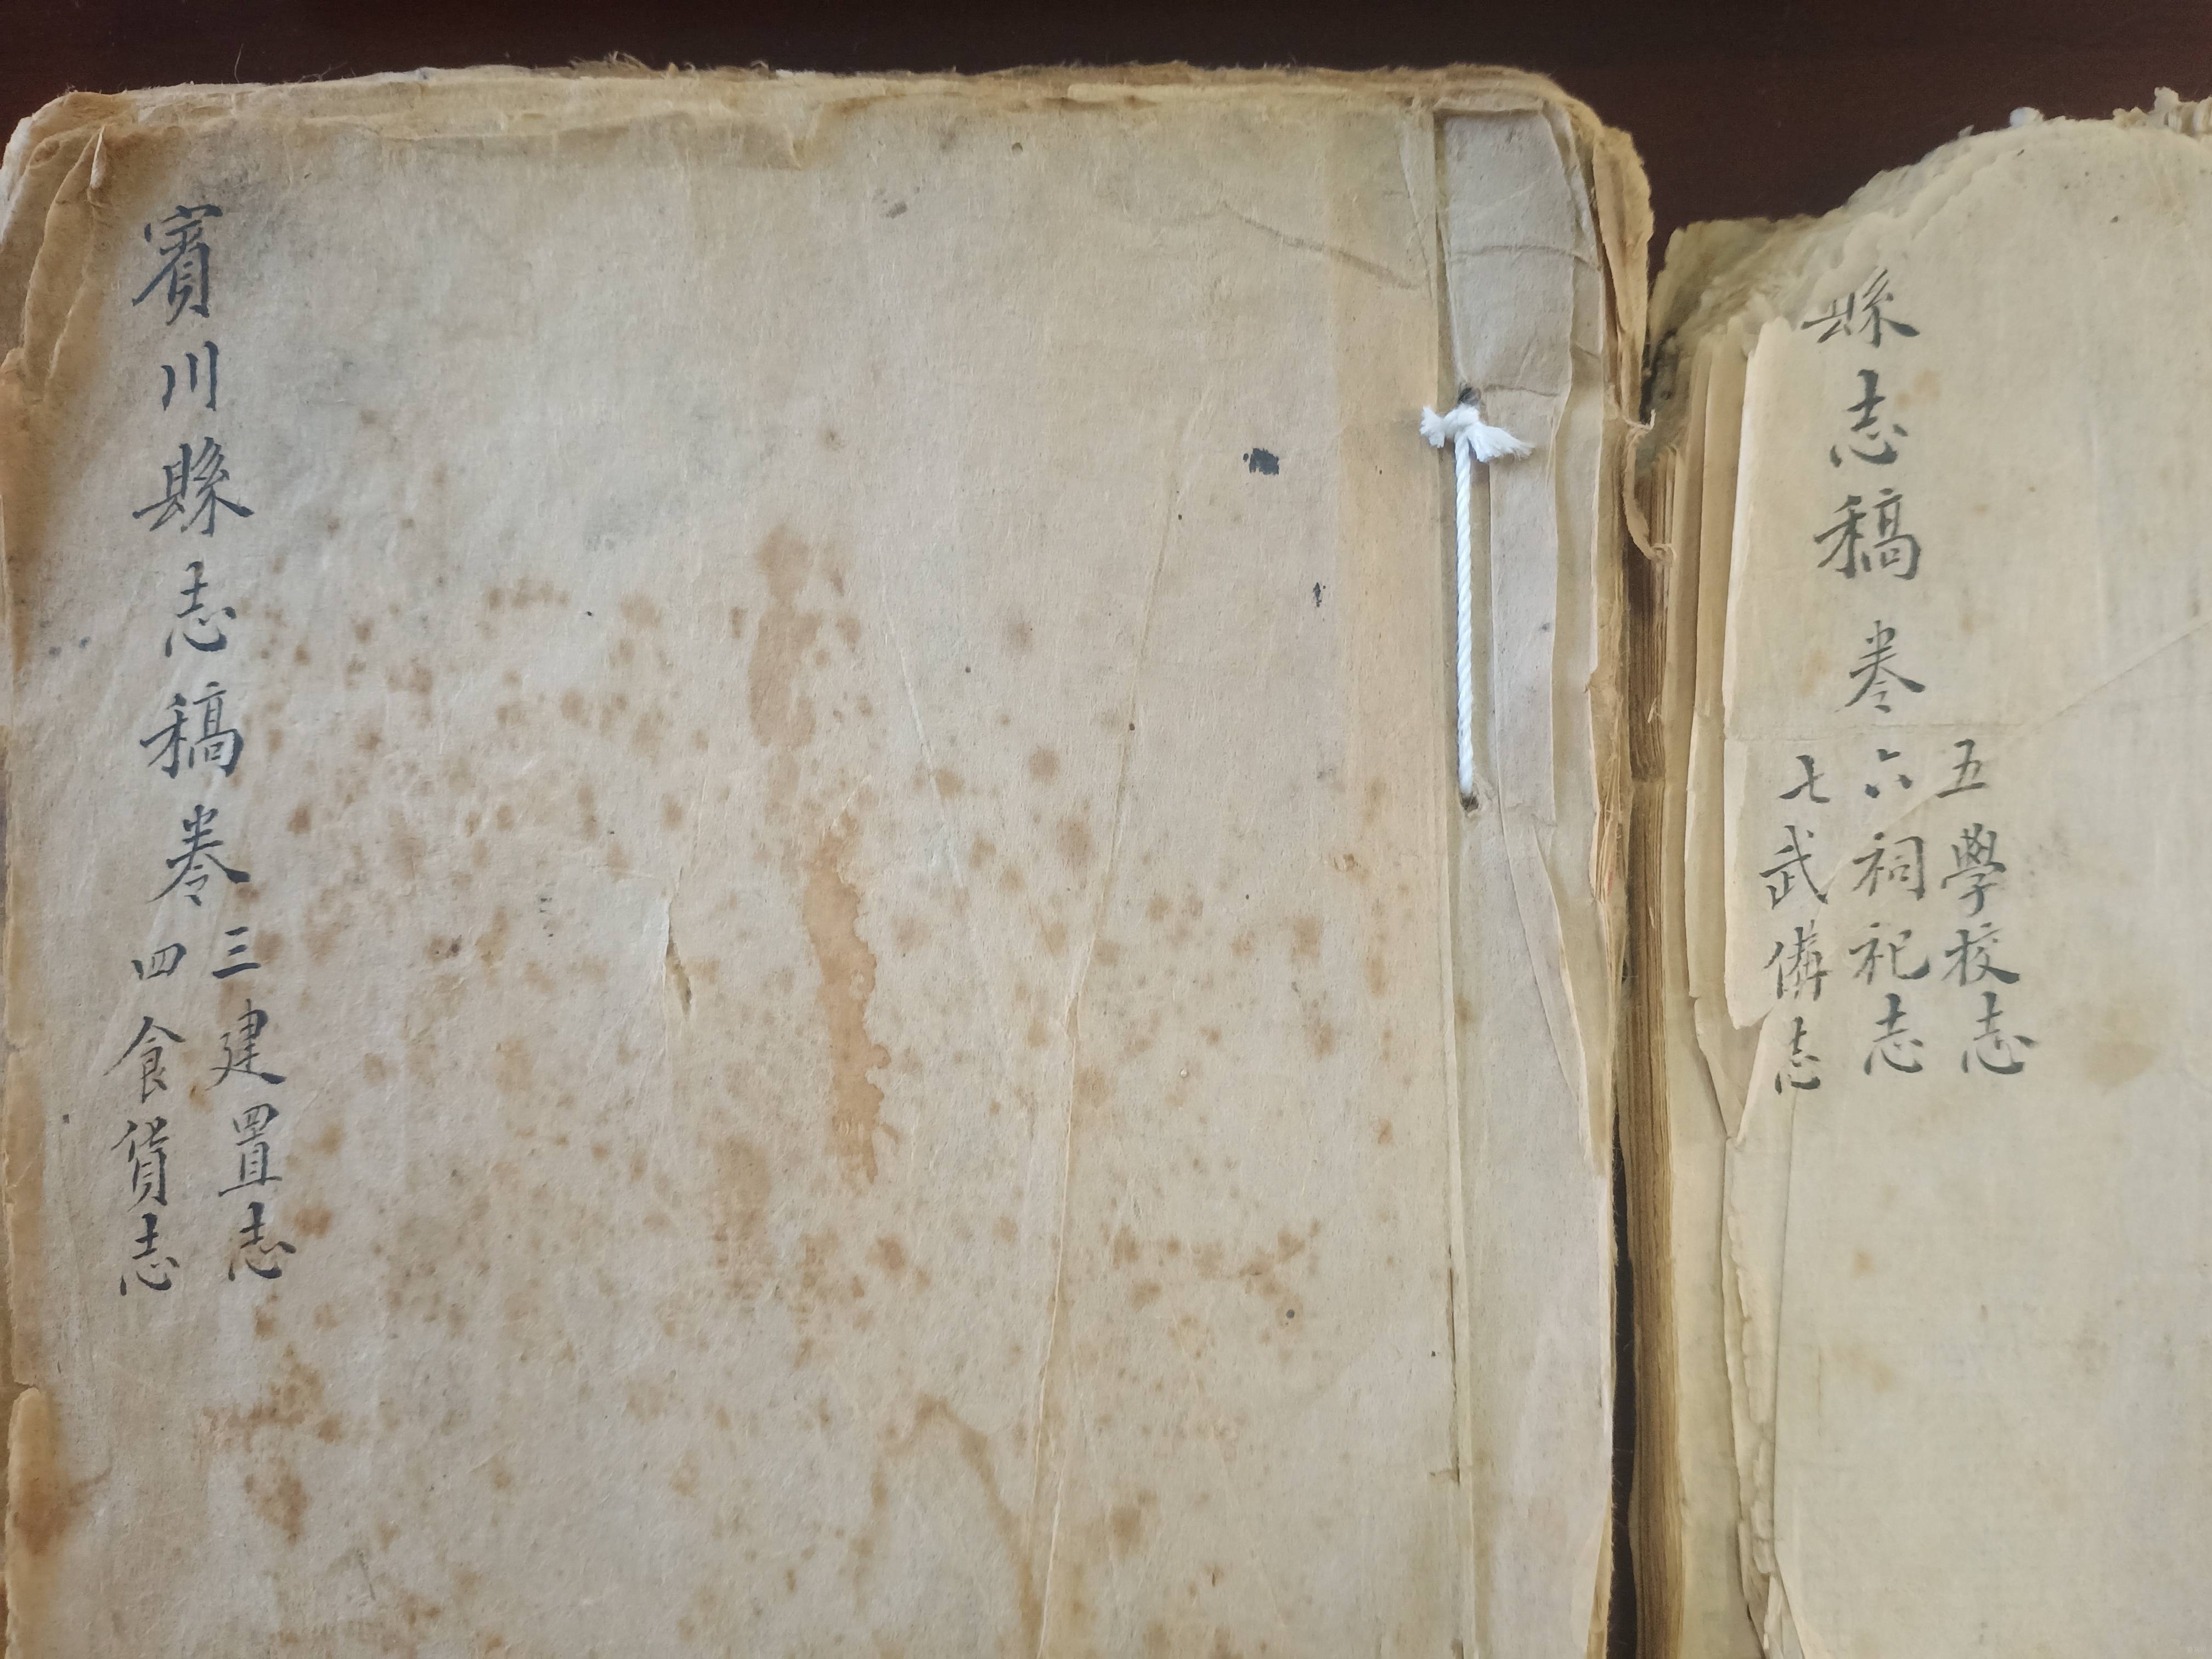 賓川縣志稿卷
三建置志
四食貨志
縣志稿卷
五學校志
六祠祀志
七武備志